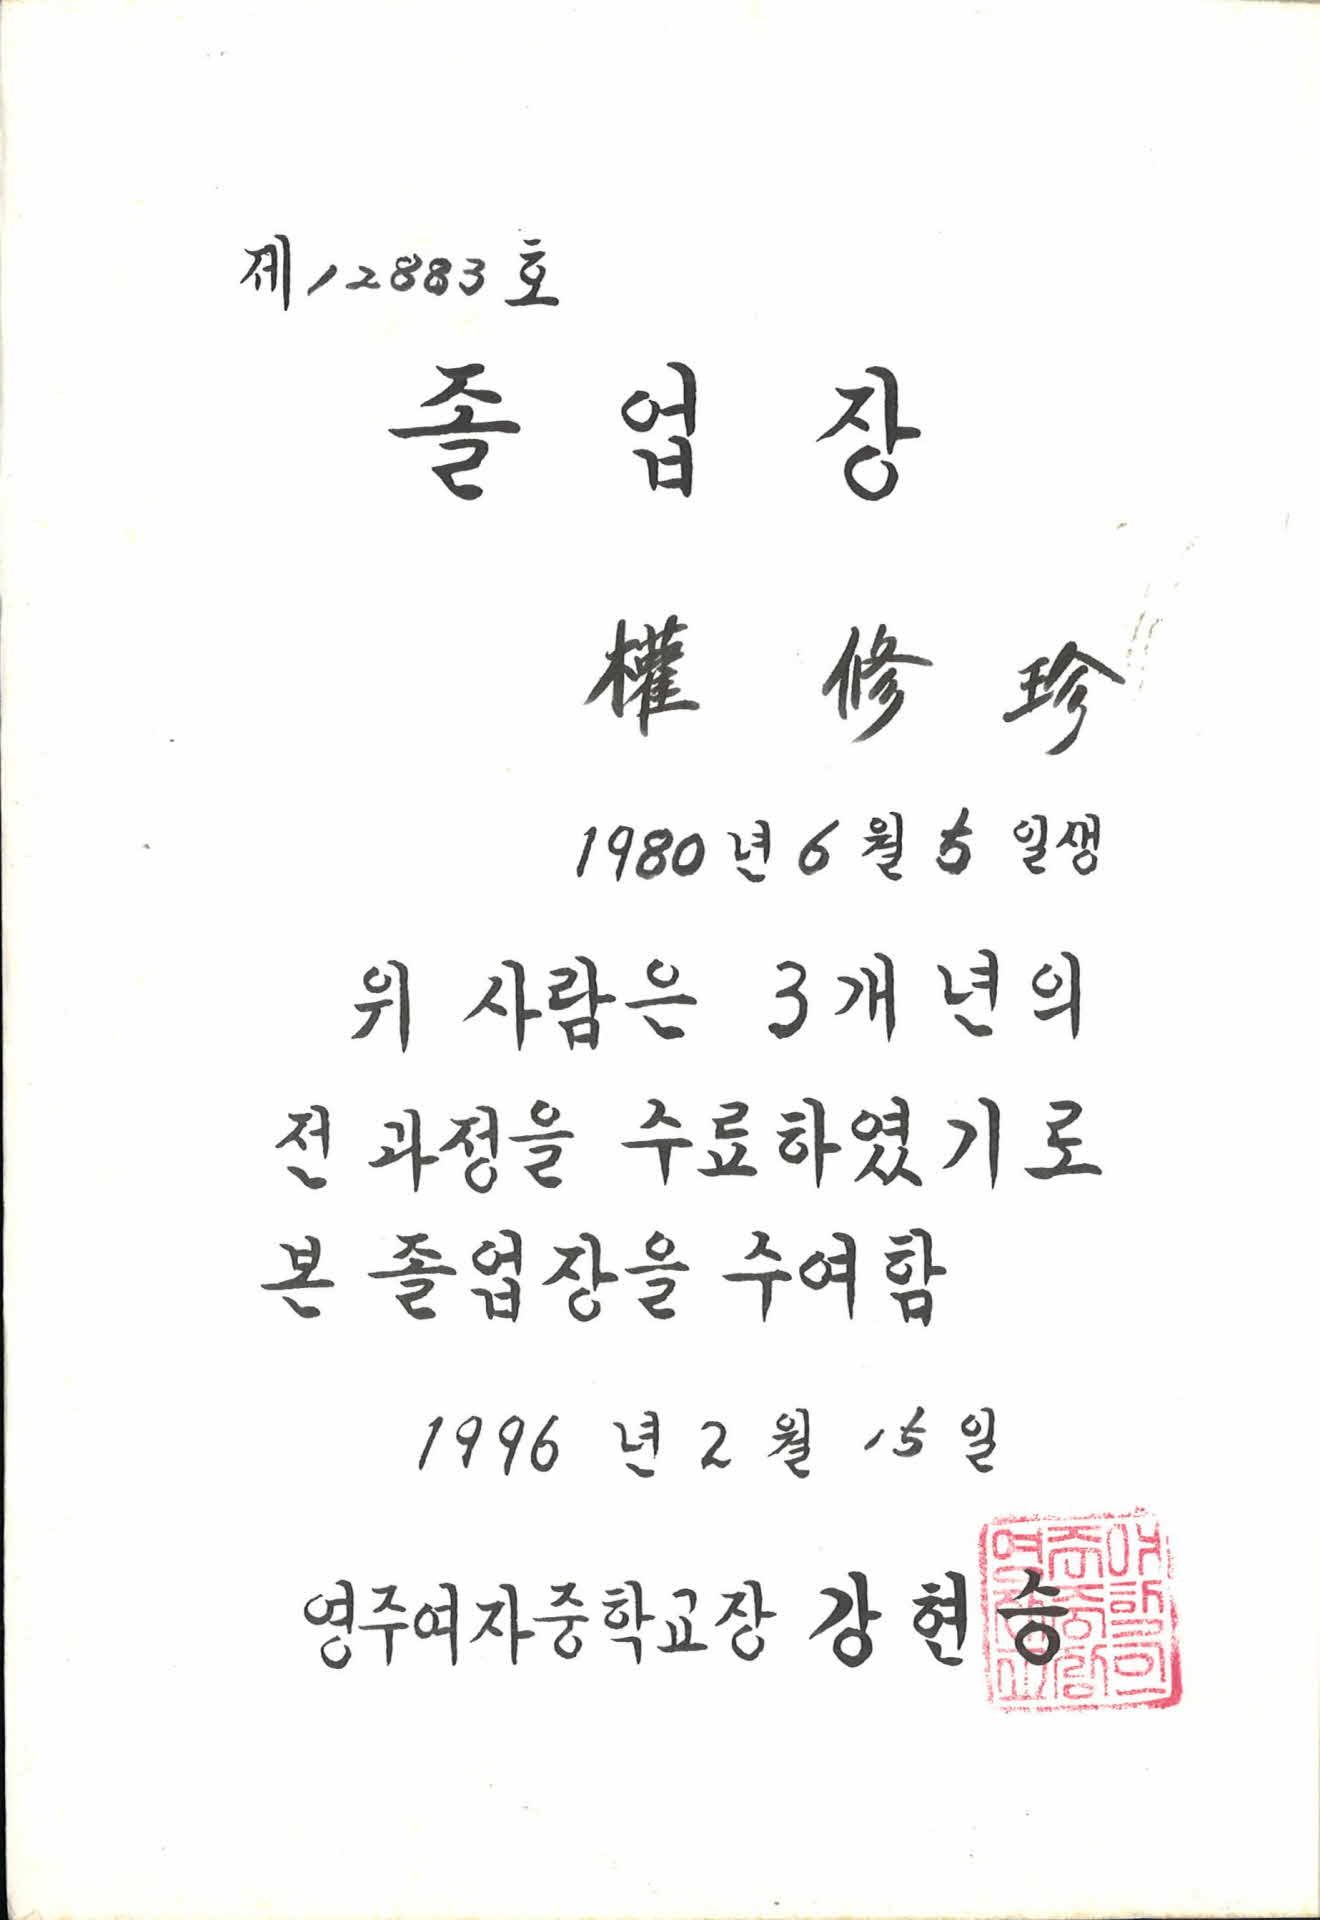 제12883호
졸업장
權修珍
1980년 6월 5일생
위 사람은 3개년의
전과정을 수료하였기로
본 졸업장을 수여함
1996년 2월 15일
영주여자중학교장 강현승